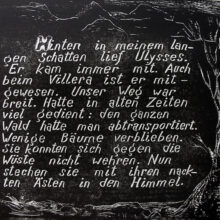 Hinten in meinem lan-
gen Schatten lief Ulysses.
Er kam immer mit. Auch
beim Villerà ist er mit-
gewesen. Unser Weg war
breit. Hatte in alten Zeiten
viel gedient: den ganzen
Wald hatte man abtransportiert.
Wenige Bäume verblieben.
Sie konnten sich gegen die
Wüste nicht wehren. Nun
stechen sie mit ihren nack-
ten Ästen in den Himmel.